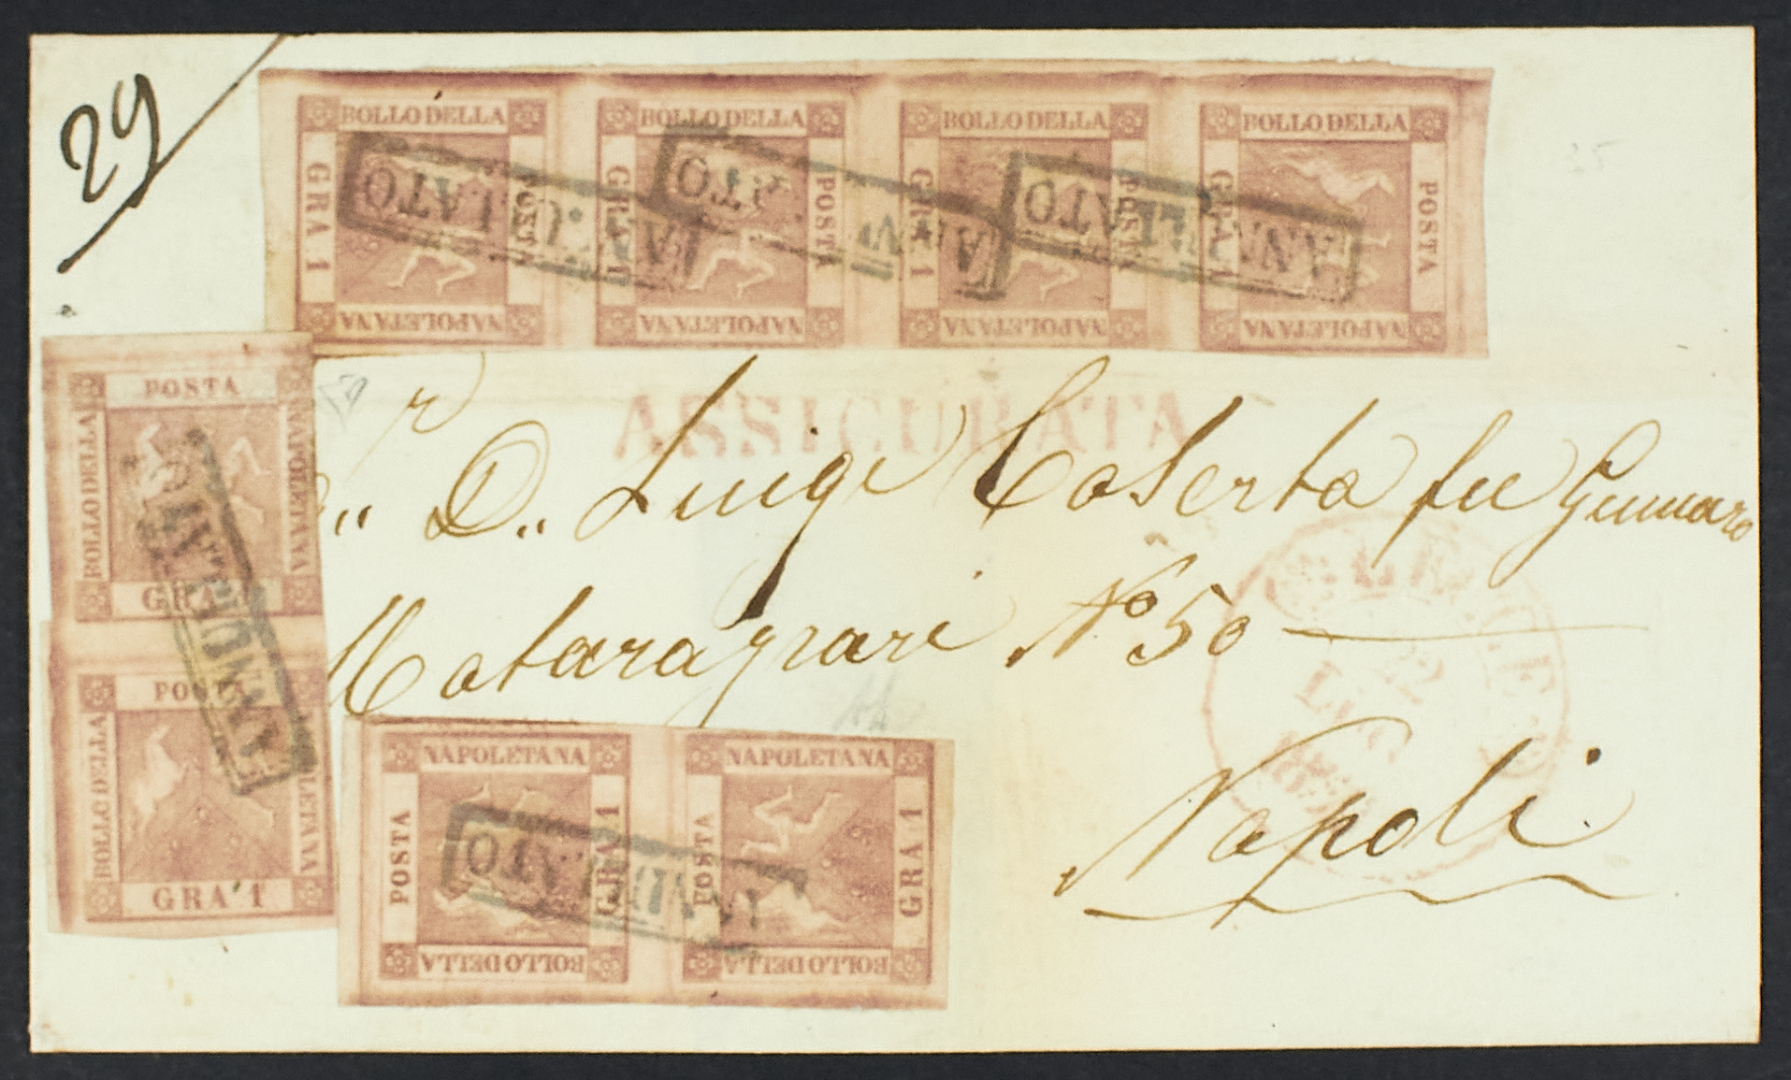 29
BOLLO DELLA POSTA NAPOLETANA GRA 1
BOLLO DELLA POSTA NAPOLETANA GRA 1
BOLLO DELLA POSTA NAPOLETANA GRA 1
BOLLO DELLA POSTA NAPOLETANA GRA 1
ANNULLATO
ANNULLATO
ANNULLATO
ASSICURATA
D. Luigi Caserta fu Gennaro
N° 50
Napoli
LUG
POSTA NAPOLETANA GRA 1 BOLLO DELLA
POSTA NAPOLETANA GRA 1 BOLLO DELLA
ANNULLATO
NAPOLETANA GRA 1 BOLLO DELLA POSTA
NAPOLETANA GRA 1 BOLLO DELLA POSTA
ANNULLATO